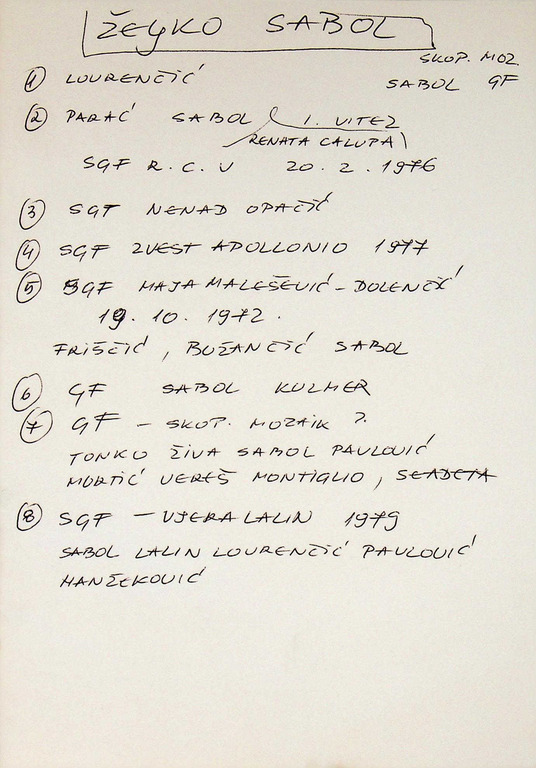 ŽELJKO SABOL
① LOURENČIĆ
SKOP. MOZ.
SABOL GF
② PARAĆ SABOL I. VITEZ
RENATA CALUPA
SGF R. C. U 20. 2. 1976
③ SGF NENAD OPAČIĆ
④ SGF ZVEST APOLLONIO 1977
⑤ SGF MAJA MALEŠEVIĆ - DOLENČIĆ
19. 10. 1972.
FRIŠČIĆ, BUŽANČIĆ SABOL
⑥ GF SABOL KULMER
⑦ GF - SKOP. MOZAIK ?
TONKO ŽIVA SABOL PAVLOVIĆ
MURTIĆ VEREŠ MONTIGLIO,
⑧ SGF - VJERA LALIN 1979
SABOL LALIN LOURENČIĆ PAVLOVIĆ
HANŽEKOVIĆ